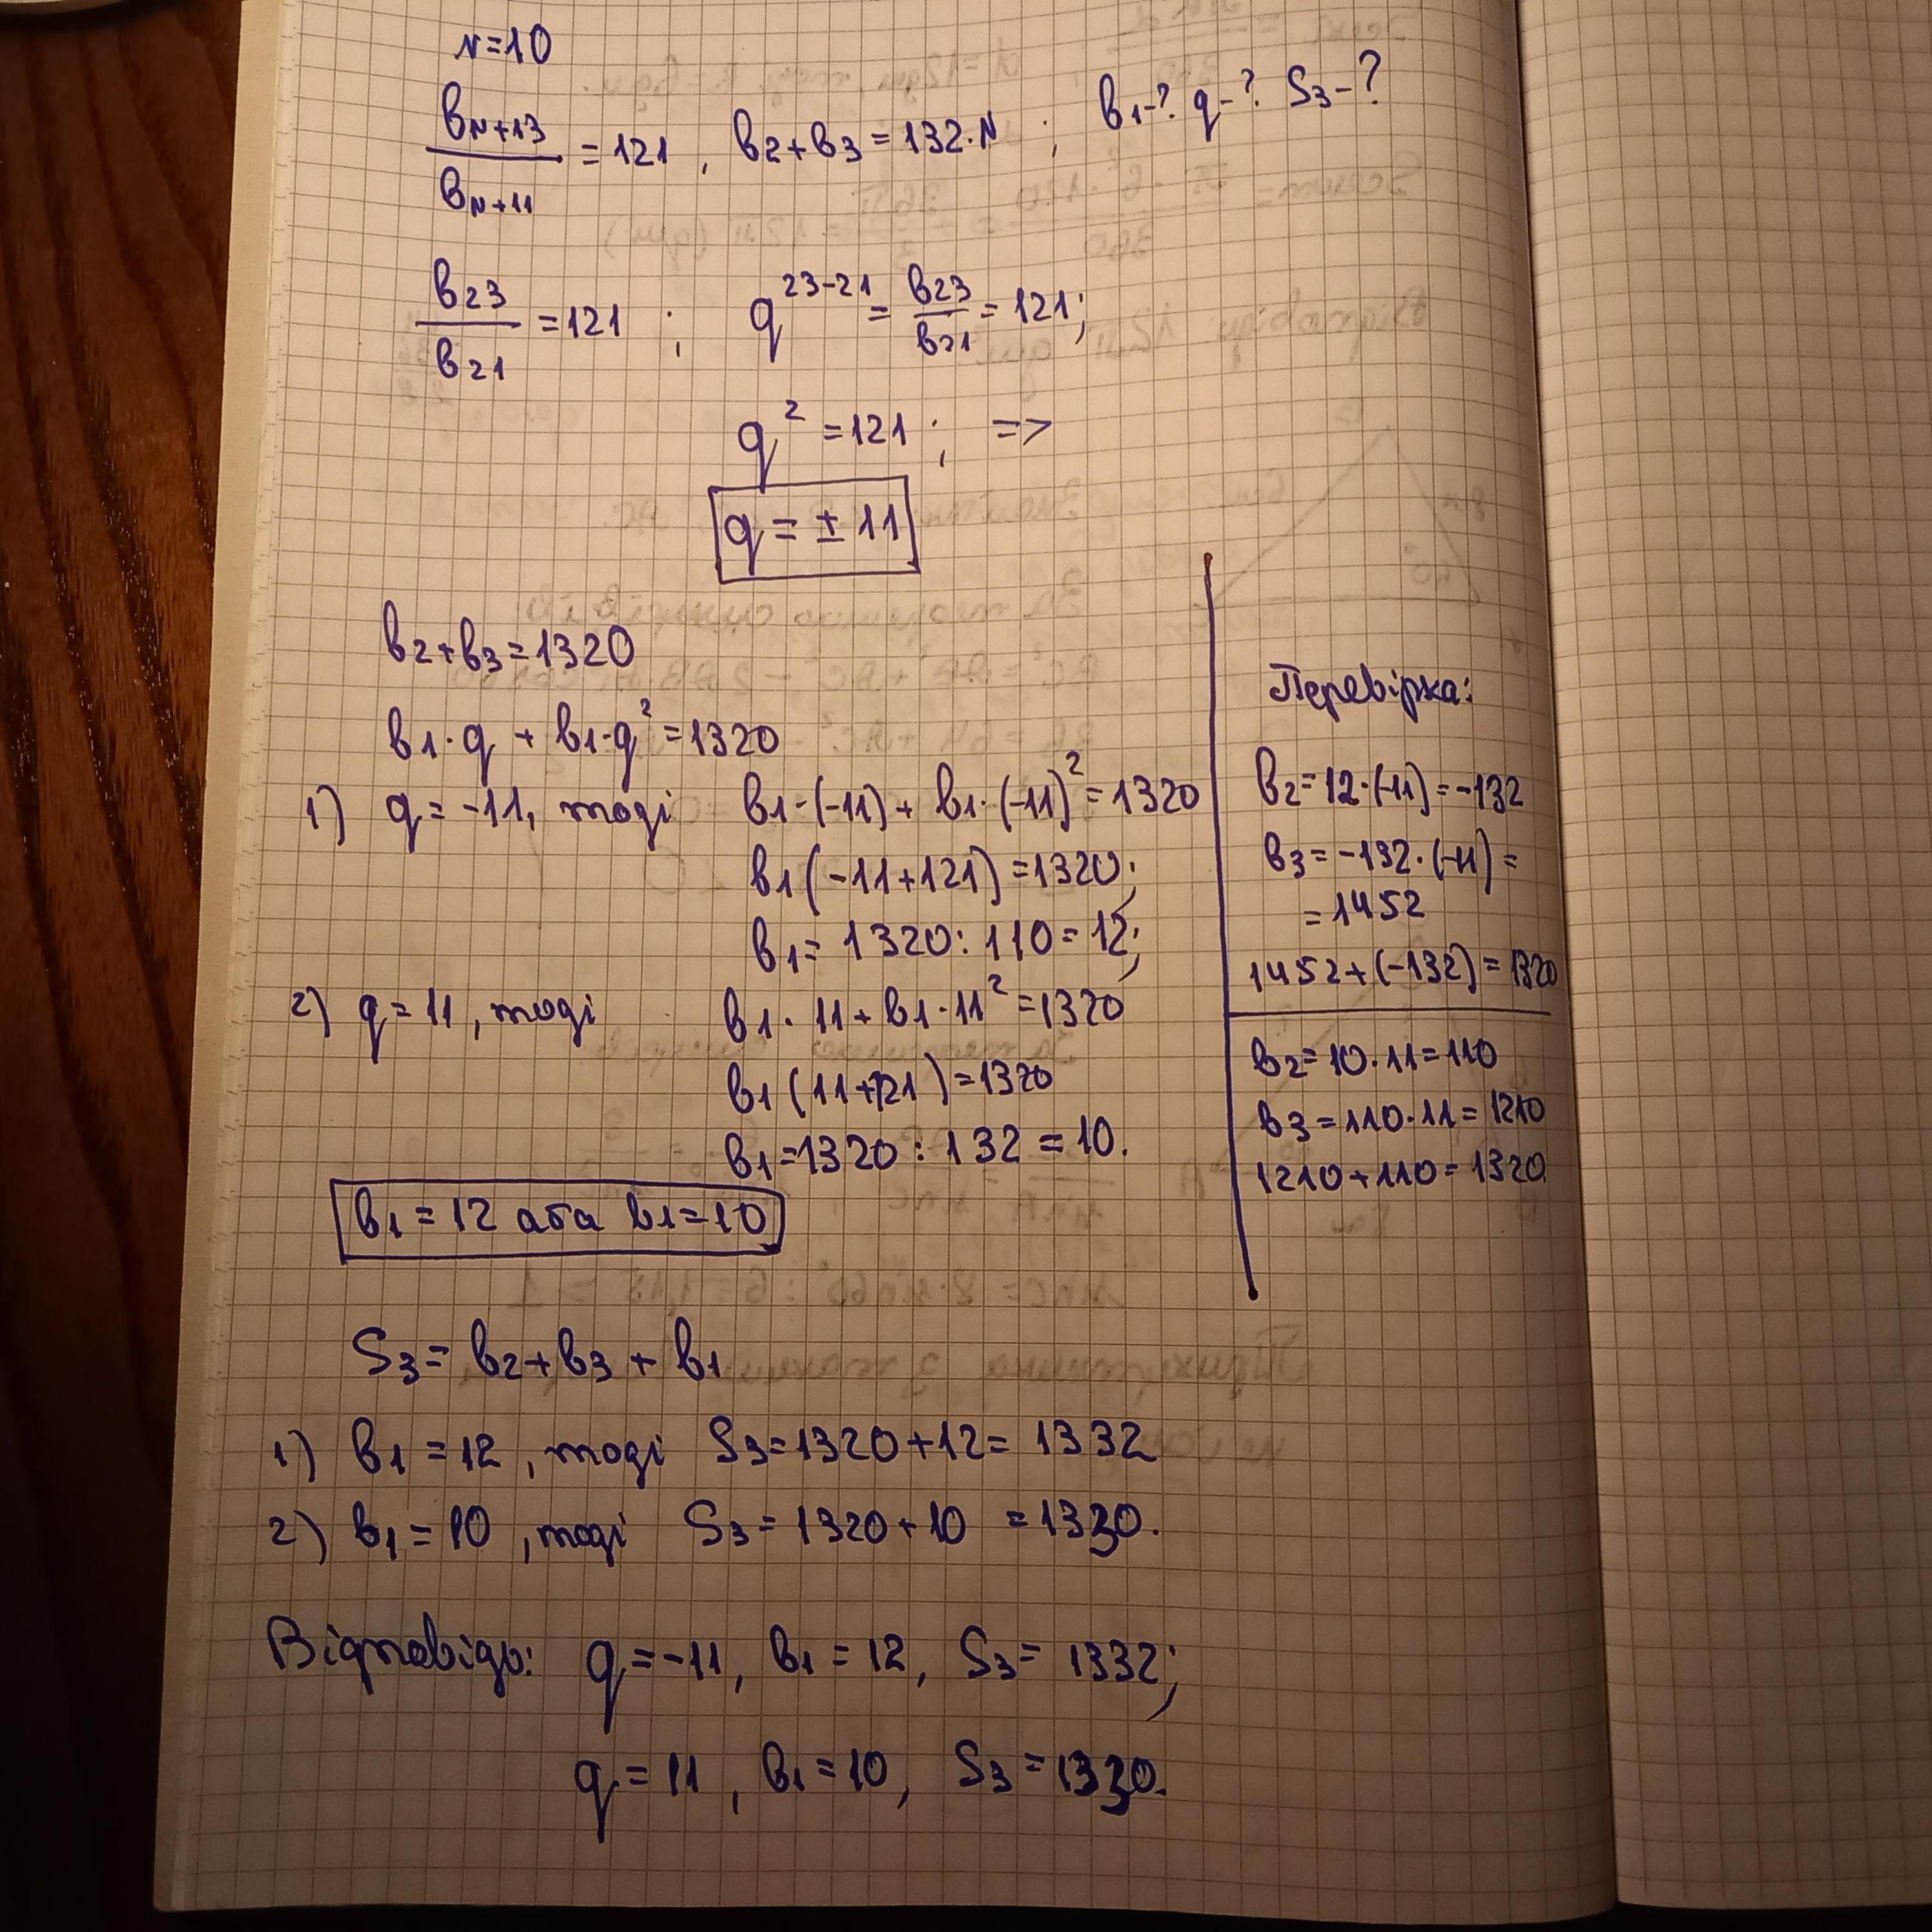 N=10
вN+13/вN+11 = 121, в2+в3 = 132·N; в1-? q-? S3-?
в23/в21 = 121; q^23-21 = в23/в21 = 121;
q² = 121; =>
q = ± 11
в2+в3=1320
в1·q + в1·q² = 1320
1) q = -11, тоді в1·(-11) + в1·(-11)² = 1320
в1(-11+121) = 1320;
в1 = 1320:110 = 12;
2) q = 11, тоді в1·11 + в1·11² = 1320
в1(11+121) = 1320
в1 = 1320:132 = 10.
в1 = 12 або в1 = 10
Перевірка:
в2 = 12·(-11) = -132
в3 = -132·(-11) =
= 1452
1452+(-132) = 1320
в2 = 10·11 = 110
в3 = 110·11 = 1210
1210+110 = 1320
S3 = в2+в3 + в1
1) в1 = 12, тоді S3 = 1320+12 = 1332
2) в1 = 10, тоді S3 = 1320+10 = 1330.
Відповідь: q = -11, в1 = 12, S3 = 1332;
q = 11, в1 = 10, S3 = 1330.